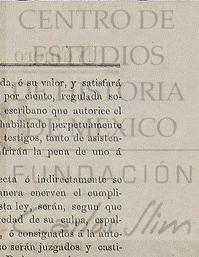 CENTRO DE
ESTUDIOS
DE HISTORIA
DE MÉXICO
FUNDACIÓN
Slim
da, ó su valor, y satisfará
por ciento, regulada so-
escribano que autorice el
habilitado perpetuamente
testigos, tanto de asisten-
frirán la pena de uno á
ecta ó indirectamente se
anera enerven el cumpli-
sta ley, serán, segun que
edad de su culpa, espul-
, ó consignados á la auto-
so serán juzgados y casti-